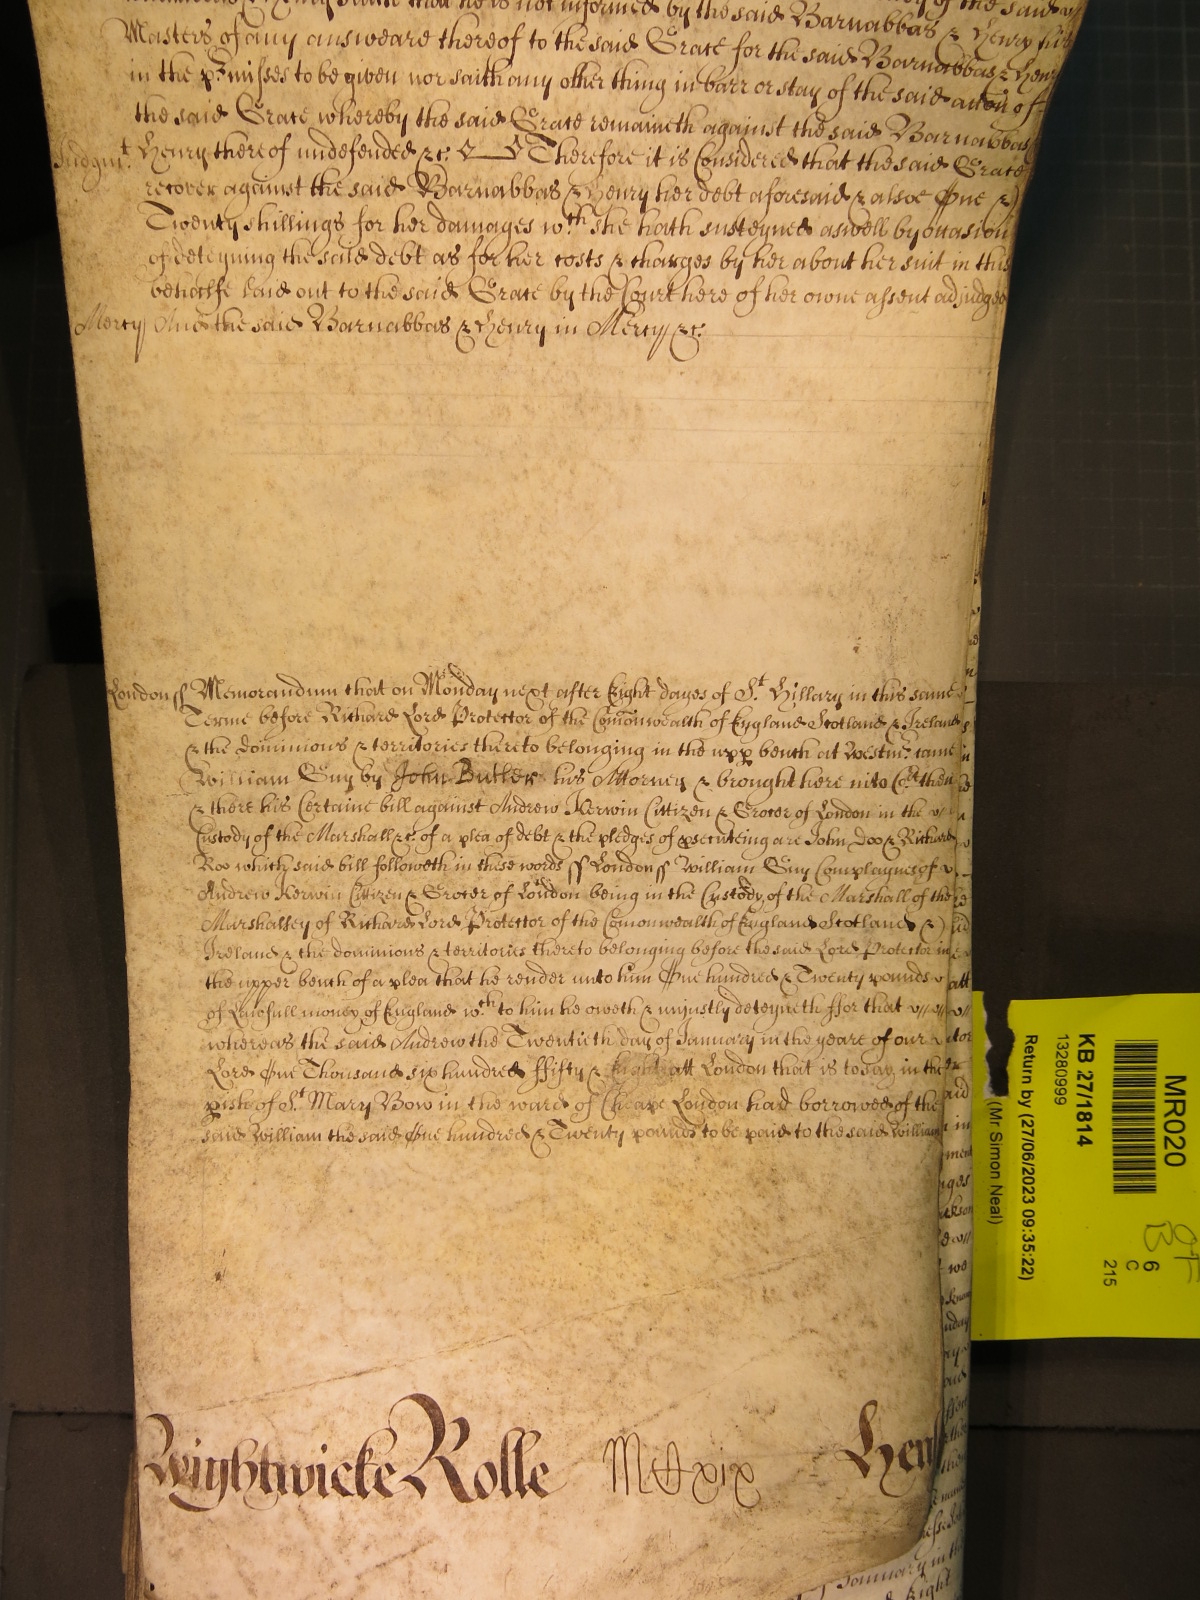 of the said
is not informed by the said Barnabbas & Henry his
Masters of any answeare thereof to the said Grace for the said Barnabbas & Henry
in the p'misses to be given nor saith any other thing in barr or stay of the said accon of
the said Grace whereby the said Grace remaineth against the said Barnabbas
Judgmt Henry thereof undefended &c. Therefore it is Considered that the said Grace
recover against the said Barnabbas & Henry her debt aforesaid & alsoe One &
Twenty shillings for her damages wch she hath susteyned aswell by occasion
of deteyning the said debt as for her costs & charges by her about her suit in this
behalfe laid out to the said Grace by the Court here of her owne assent adjudged
Mercy And the said Barnabbas & Henry in Mercy &c.
London ss Memorandum that on Monday next after Eight dayes of St Hillary in this same
Terme before Richard Lord Protector of the Comonwealth of England Scotland & Ireland
& the dominions & territories thereto belonging in the upp bench at Westmr came
William Guy by John Butler his Attorney & brought here into Ct then
& there his Certaine bill against Andrew Kerwin Cittizen & Grocer of London in the
Custody of the Marshall &c. of a plea of debt & the pledges of psecuteing are John Doo & Richard
Roo which said bill followeth in these words ss London ss William Guy Complaynes of
Andrew Kerwin Cittizen & Grocer of London being in the Custody of the Marshall of the
Marshalsey of Richard Lord Protector of the Comonwealth of England Scotland &
Ireland & the dominions & territories thereto belonging before the said Lord Protector in
the upper bench of a plea that he render unto him One hundred & Twenty pounds
of Lawfull money of England wch to him he oweth & unjustly deteyneth ffor that
whereas the said Andrew the Twentieth day of January in the yeare of our
Lord One Thousand six hundred ffifty & Eight att London that is to say in the
pish of St Mary Bow in the ward of Cheape London had borrowed of the
said William the said One hundred & Twenty pounds to be paid to the said William
Wightwicke Rolle xix Hen
MR020
KB 27/1814
13280999
Return by (27/06/2023 09:35:22)
(Mr Simon Neal)
6
C
215